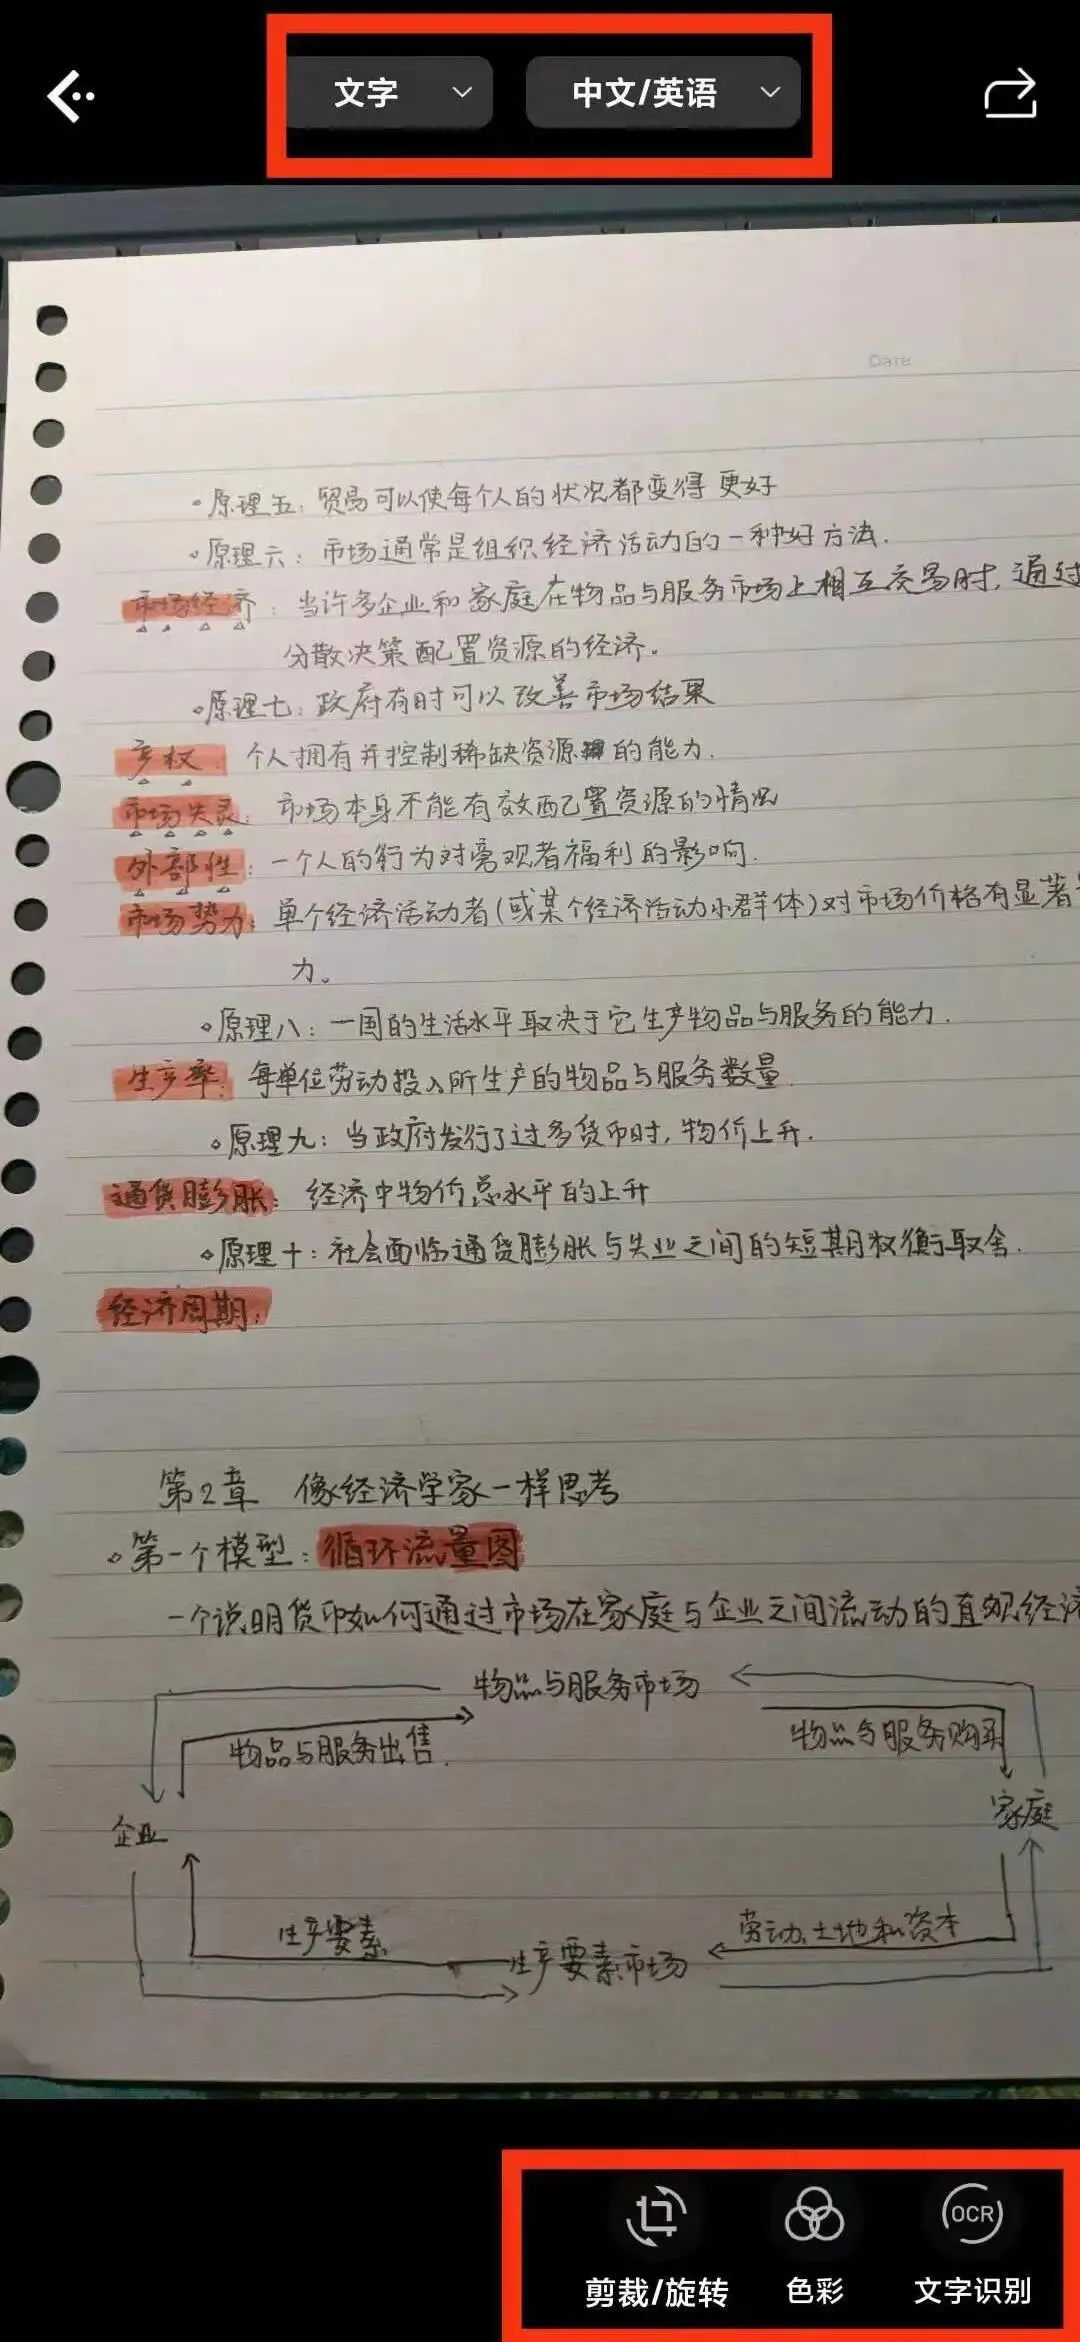 文字
中文/英语
Date
◦原理五：贸易可以使每个人的状况都变得更好
◦原理六：市场通常是组织经济活动的一种好方法.
市场经济：当许多企业和家庭在物品与服务市场上相互交易时，通过
分散决策配置资源的经济。
◦原理七：政府有时可以改善市场结果
产权：个人拥有并控制稀缺资源的能力.
市场失灵：市场本身不能有效配置资源的情况
外部性：一个人的行为对旁观者福利的影响.
市场势力：单个经济活动者(或某个经济活动小群体)对市场价格有显著
力。
◦原理八：一国的生活水平取决于它生产物品与服务的能力.
生产率：每单位劳动投入所生产的物品与服务数量.
◦原理九：当政府发行了过多货币时，物价上升.
通货膨胀：经济中物价总水平的上升
◦原理十：社会面临通货膨胀与失业之间的短期权衡取舍.
经济周期：
第2章 像经济学家一样思考
◦第一个模型：循环流量图
一个说明货币如何通过市场在家庭与企业之间流动的直观经济
物品与服务市场
物品与服务出售.
物品与服务购买
企业
家庭
生产要素
劳动、土地和资本
生产要素市场
剪裁/旋转
色彩
OCR
文字识别